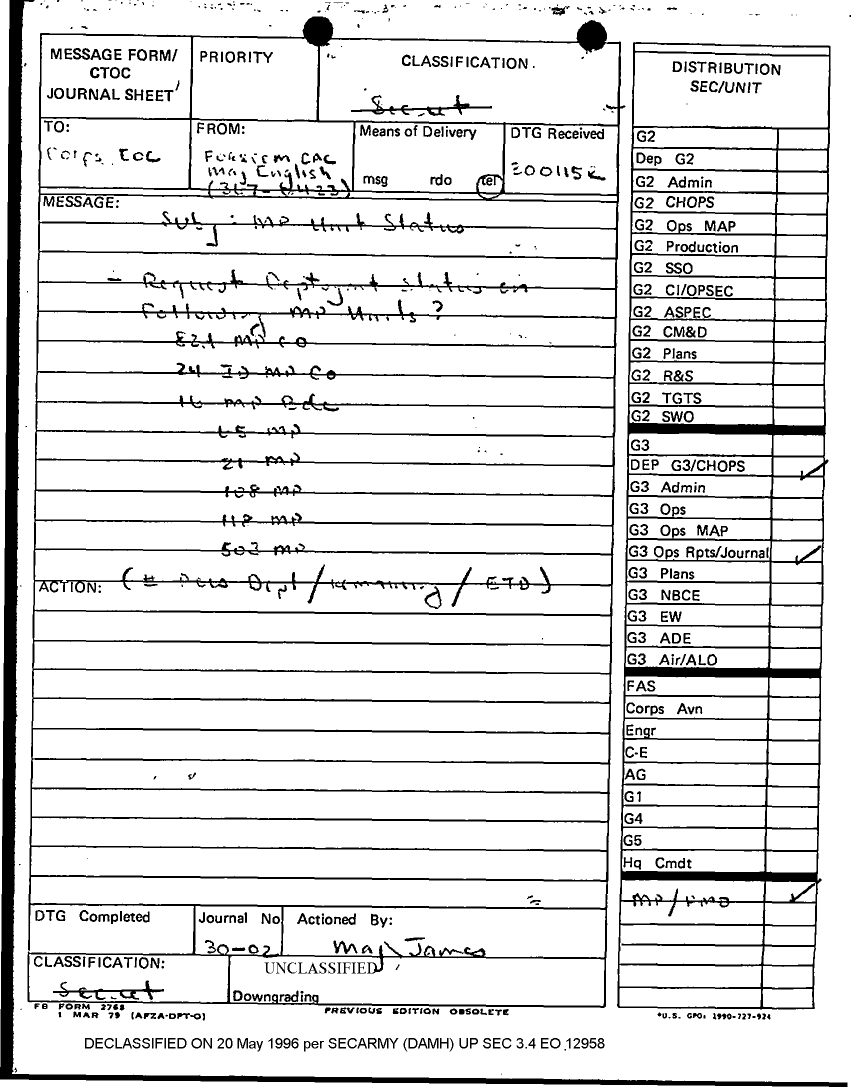 MESSAGE FORM/
CTOC
JOURNAL SHEET
PRIORITY
CLASSIFICATION.
Secret
TO:
Corps EOC
FROM:
Forscom CAC
Maj English
Means of Delivery
msg rdo tel
DTG Received
300115Z
MESSAGE:
Subj: MP Unit Status
- Request Deployment Status on
Following MP Units?
MP Co
24 ID MP Co
16 MP Bde
65 MP
21 MP
108 MP
118 MP
503 MP
ACTION:
(# Pers Depl/remaining/ETD)
DTG Completed
Journal No
30-02
Actioned By:
Maj James
CLASSIFICATION:
Secret
UNCLASSIFIED
Downgrading
FB FORM 2768
1 MAR 79 (AFZA-DPT-O)
PREVIOUS EDITION OBSOLETE
DISTRIBUTION
SEC/UNIT
G2
Dep G2
G2 Admin
G2 CHOPS
G2 Ops MAP
G2 Production
G2 SSO
G2 CI/OPSEC
G2 ASPEC
G2 CM&D
G2 Plans
G2 R&S
G2 TGTS
G2 SWO
G3
DEP G3/CHOPS
G3 Admin
G3 Ops
G3 Ops MAP
G3 Ops Rpts/Journal
G3 Plans
G3 NBCE
G3 EW
G3 ADE
G3 Air/ALO
FAS
Corps Avn
Engr
C-E
AG
G1
G4
G5
Hq Cmdt
*U.S. GPO: 1990-727-924
DECLASSIFIED ON 20 May 1996 per SECARMY (DAMH) UP SEC 3.4 EO 12958